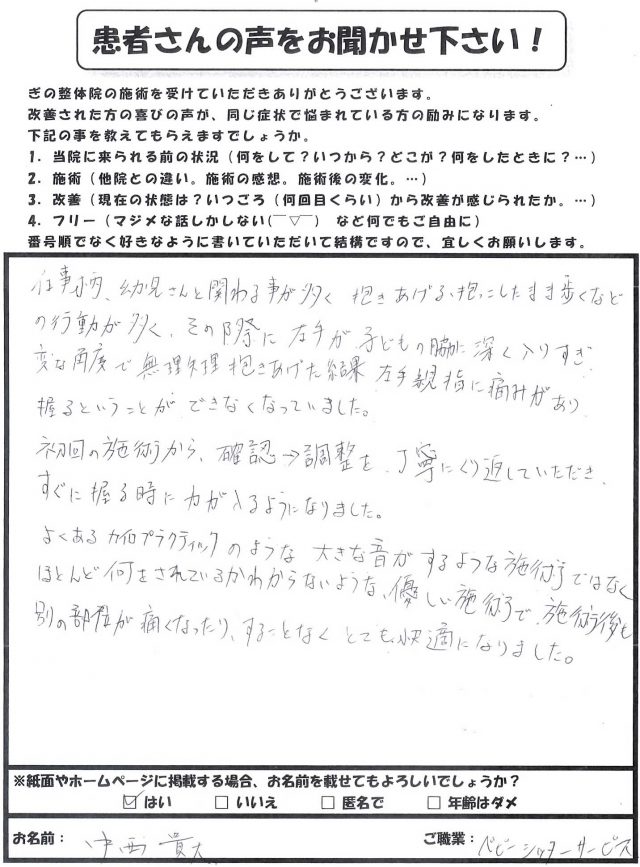 患者さんの声をお聞かせ下さい！
ぎの整体院の施術を受けていただきありがとうございます。
改善された方の喜びの声が、同じ症状で悩まれている方の励みになります。
下記の事を教えてもらえますでしょうか。
1．当院に来られる前の状況（何をして？いつから？どこが？何をしたときに？…）
2．施術（他院との違い。施術の感想。施術後の変化。…）
3．改善（現在の状態は？いつごろ（何回目くらい）から改善が感じられたか。…）
4．フリー（マジメな話しかしない(￣▽￣)　など何でもご自由に）
番号順でなく好きなように書いていただいて結構ですので、宜しくお願いします。
仕事柄、幼児さんと関わる事が多く 抱きあげる、抱っこしたまま歩くなど
の行動が多く、その際に左手が子どもの脇に深く入りすぎ
変な角度で無理矢理抱きあげた結果 左手親指に痛みがあり
握るということができなくなっていました。
初回の施術から、確認→調整を、丁寧にくり返していただき、
すぐに握る時に力が入るようになりました。
よくあるカイロプラクティックのような 大きな音がするような施術ではなく
ほとんど何をされているかわからないような、優しい施術で、施術後も
別の部位が痛くなったり、することなく とても快適になりました。
※紙面やホームページに掲載する場合、お名前を載せてもよろしいでしょうか？
☑ はい　□ いいえ　□ 匿名で　□ 年齢はダメ
お名前： 中西 貴大　ご職業： ベビーシッターサービス